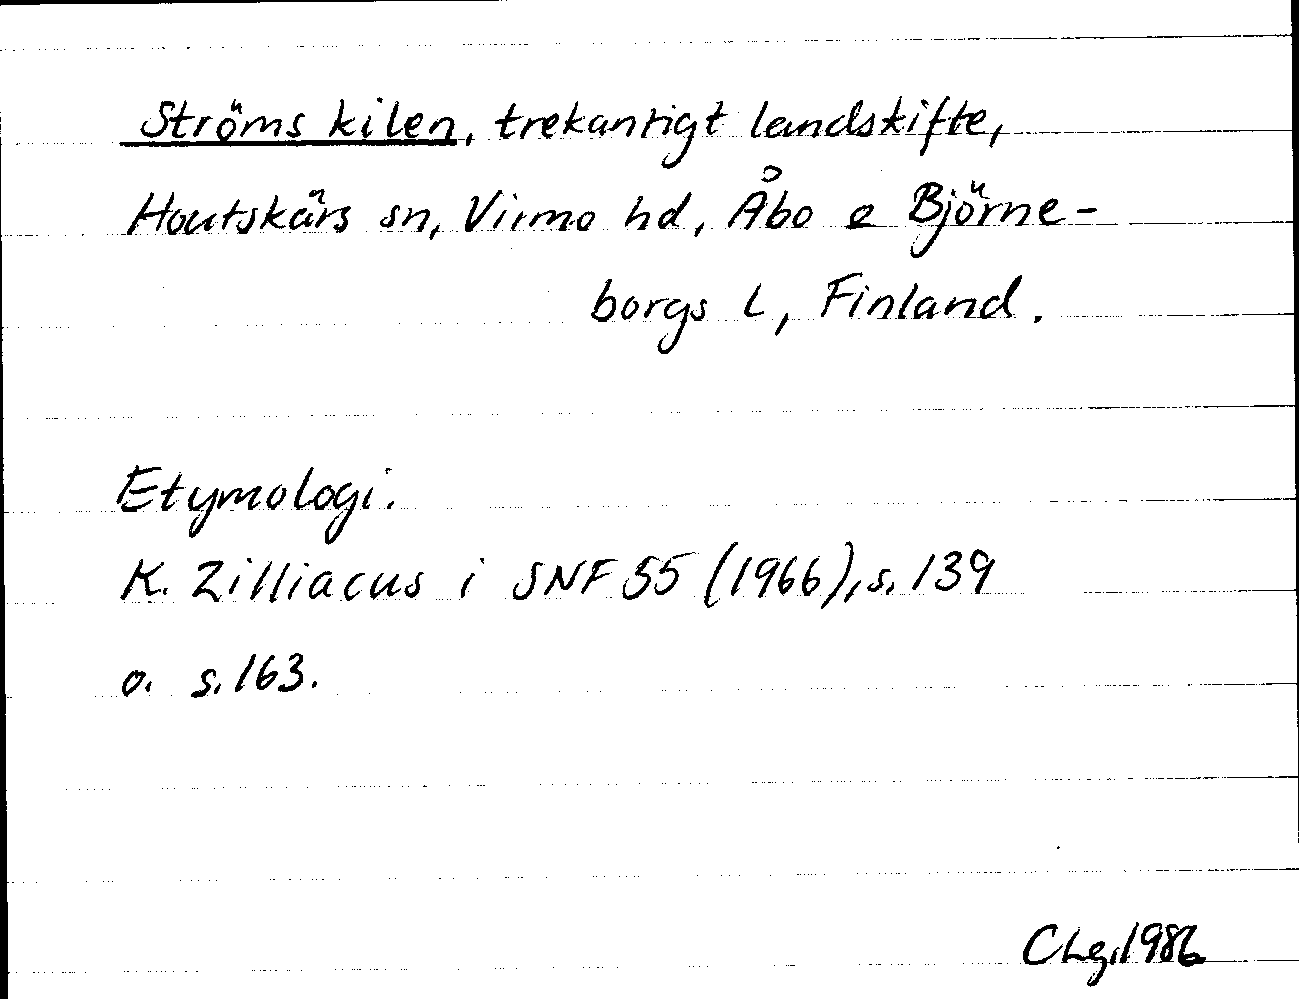 Ströms kilen, trekantigt landskifte,
Houtskärs sn, Virmo hd, Åbo o Björne-
borgs L, Finland.
Etymologi.
K. Zilliacus i SNF 55 (1966), s. 139
o. s. 163.
CLg, 1986